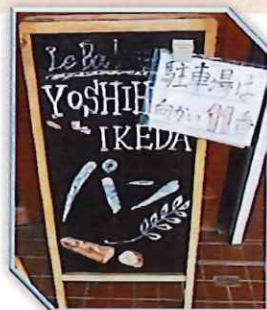 YOSHIH
IKEDA
パン
駐車場は
向かい 11台